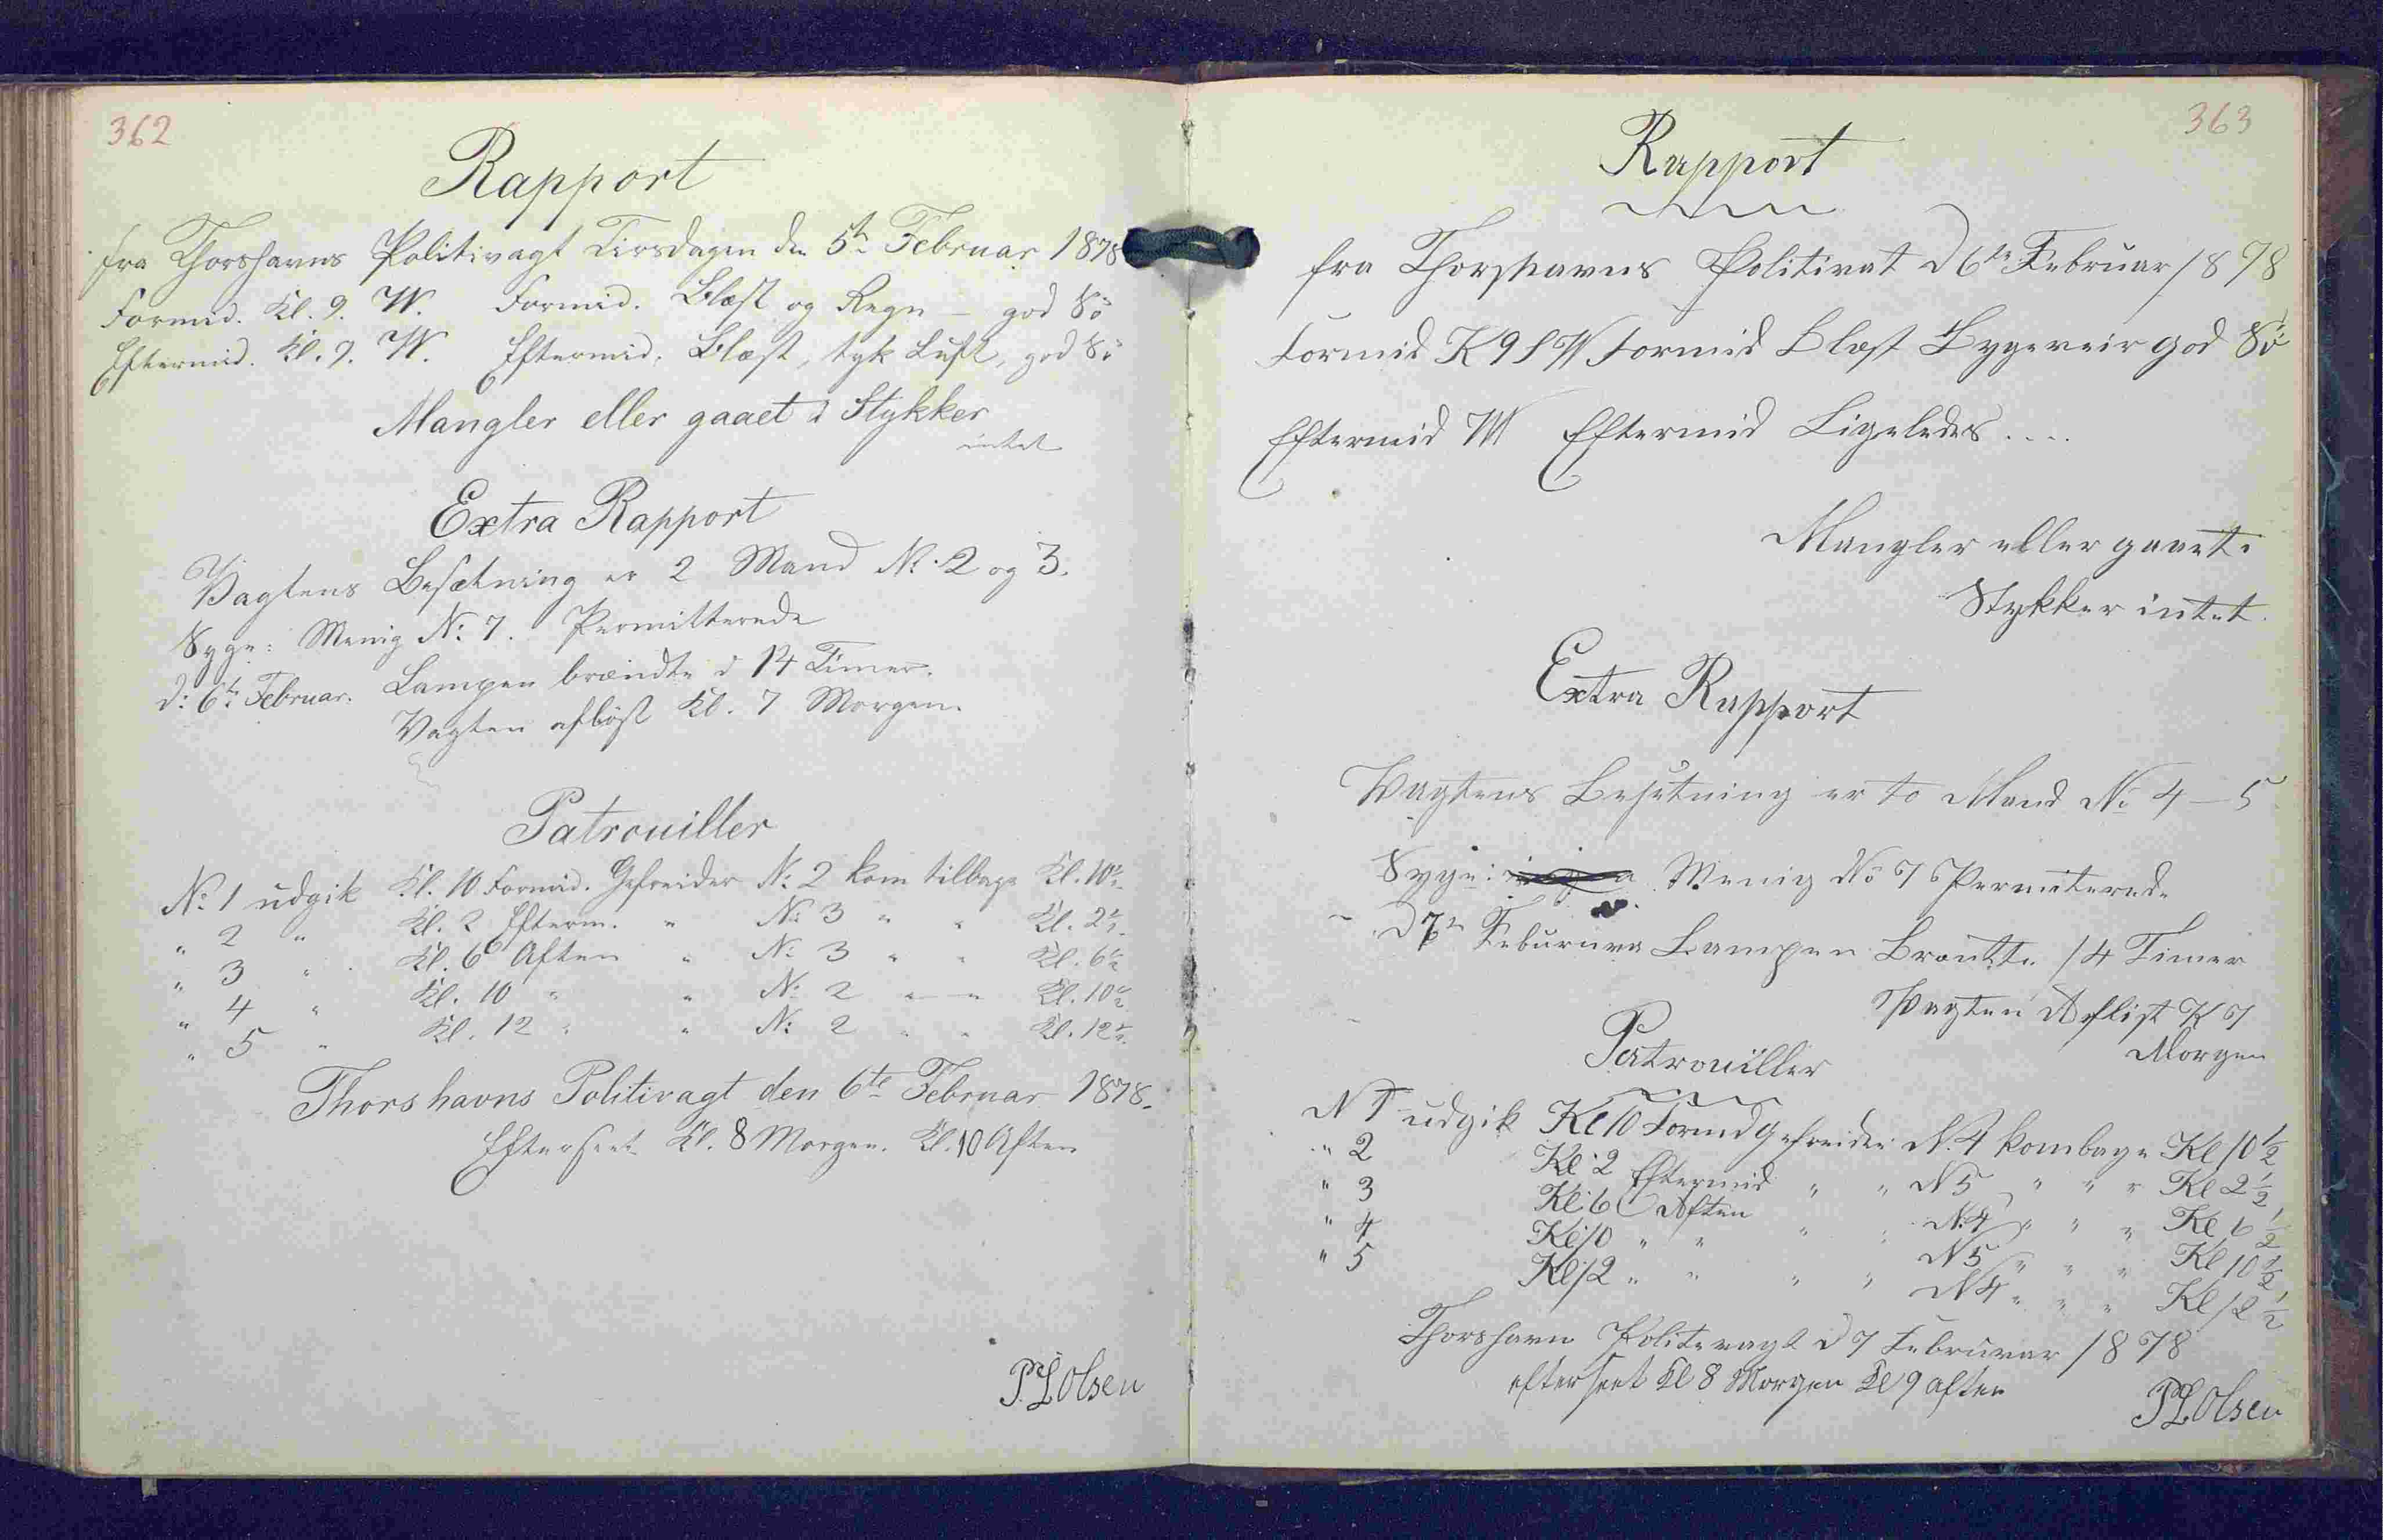 362
Rapport
fra Thorshavns Politivagt Tirsdagen den 5te Februar 1878
Formid. Kl. 9. W. Formid. Blæst og Regn – god Sö
Eftermid. Kl. 9. W. Eftermid. Blæst, tyk Luft, god Sö
Mangler eller gaaet i Stykker
intet
Extra Rapport
Vagtens Besætning er 2 Mand No. 2 og 3.
Syge: Menig No. 7. Permitterede
d: 6te Februar. Lampen brændte i 14 Timer.
Vagten aflöst Kl. 7 Morgen.
Patrouiller
No. 1 udgik Kl. 10 Formid. Gefreider No. 2 kom tilbage Kl. 10½
" 2 " Kl. 2 Efterm. " No. 3 " " Kl. 2½
" 3 " Kl. 6 Aften " No. 3 " " Kl. 6½
" 4 " Kl. 10 " " No. 2 " " Kl. 10½
" 5 " Kl. 12 " " No. 2 " " Kl. 12½
Thorshavns Politivagt den 6te Februar 1878.
Efterseet Kl. 8 Morgen. Kl. 10 Aften
P.L Olsen
363
Rapport
fra Thorshavns Politivat d 6te Februar 1878
Formid K 9 SW Formid Blæst Bygeveir god Sö
Eftermid W Eftermid Ligeledes ....
Mangler eller gaaet i
Stykker intet.
Extra Rapport
Vagtens Besetning er to Mand No 4 – 5
Syge: Menig No 7 Permiterede
d 7de Feburura Lampen Brændte 14 Timer
Vagten Aflist K 7
Morgen
Patrouiller
N 1 udgik Kl 10 Formd Gefreider N. 4 kom bage Kl 10 ½
" 2 Kl 2 Eftermid " " N 5 " " " Kl 2 ½
" 3 Kl 6 Aften " " N 4 " " " Kl 6 ½
" 4 Kl 10 " " " " N 5 " " " Kl 10 ½
" 5 Kl 12 " " " " N 4 " " " Kl 12 ½
Thorshavn Politevagt d 7 Februrar 1878
efterseet Kl 8 Morgen Kl 9 aften
P L Olsen